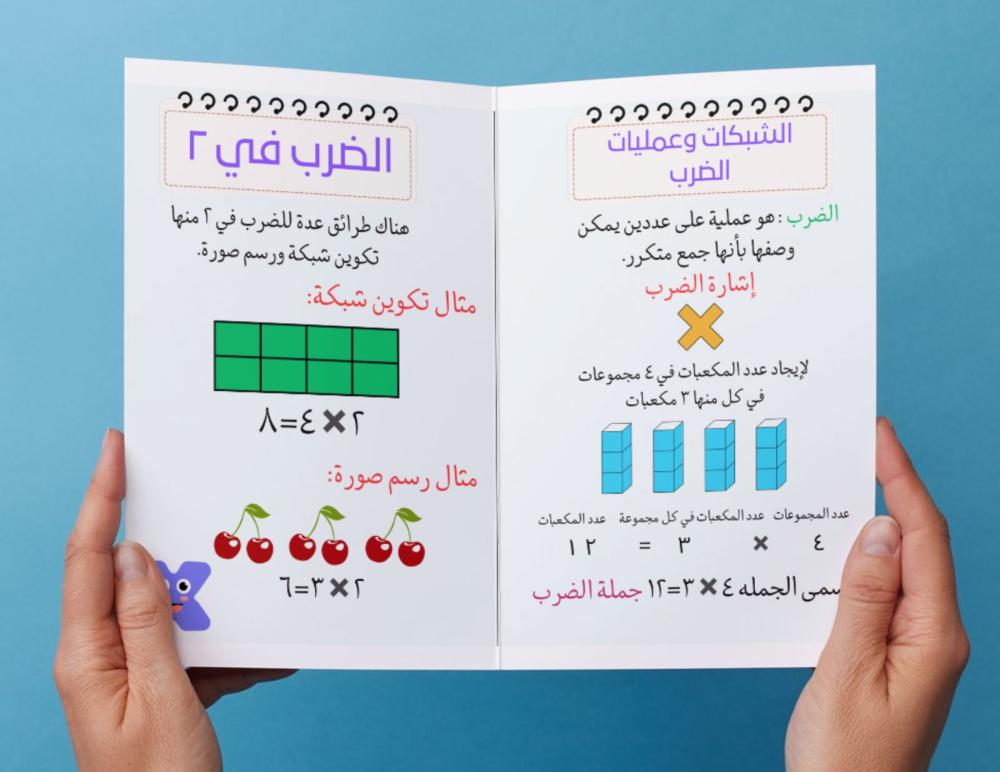 الشبكات وعمليات
الضرب
الضرب : هو عملية على عددين يمكن
وصفها بأنها جمع متكرر.
إشارة الضرب
لإيجاد عدد المكعبات في ٤ مجموعات
في كل منها ٣ مكعبات
عدد المجموعات عدد المكعبات في كل مجموعة عدد المكعبات
٤ × ٣ = ١٢
الجمله ٤ × ٣=١٢ جملة الضرب
الضرب في ٢
هناك طرائق عدة للضرب في ٢ منها
تكوين شبكة ورسم صورة.
مثال تكوين شبكة:
٢ × ٤=٨
مثال رسم صورة:
٢ × ٣=٦